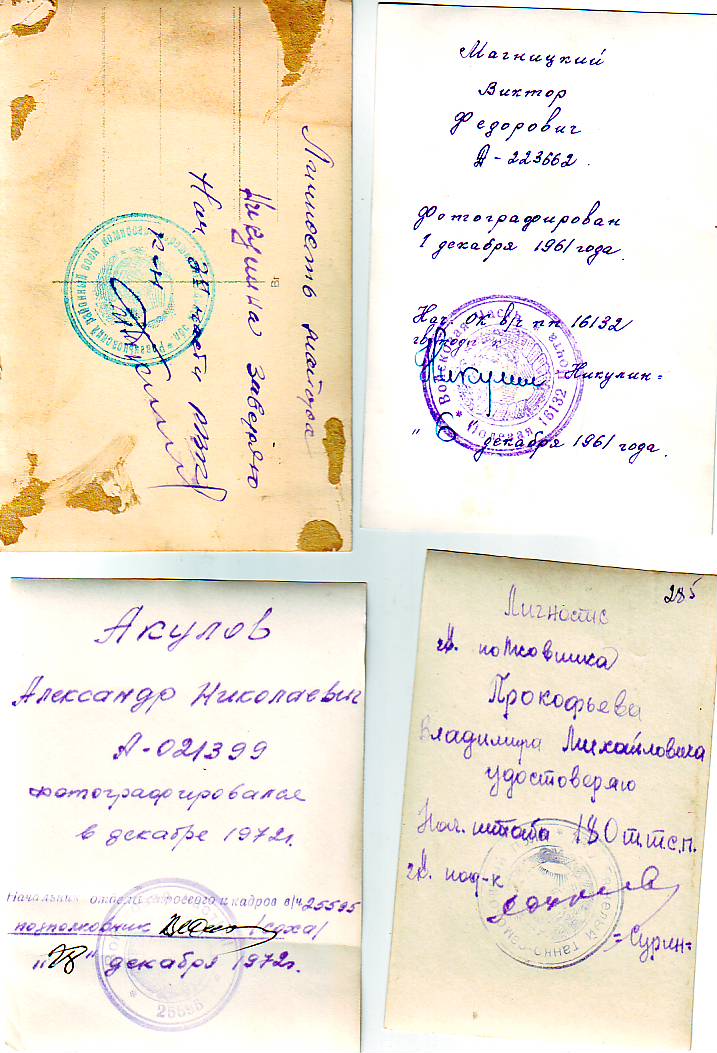 Личность майора
Никулина заверяю
Нач. части
Магницкий
Виктор
Федорович
А-223662.
Фотографирован
1 декабря 1961 года.
Нач. ОК в/ч пп 16132
Никулин=
" декабря 1961 года.
Войсковая часть
Полевая почта 16132
Акулов
Александр Николаевич
А-021399
фотографировался
в декабре 1972г.
Начальник отдела строевого и кадров в/ч 25595
подполковник /Соха/
"28" декабря 1972г.
25595
285
Личность
гв. полковника
Прокофьева
Владимира Михайловича
удостоверяю
Нач. штаба 180
гв. под-к
=Сурин=